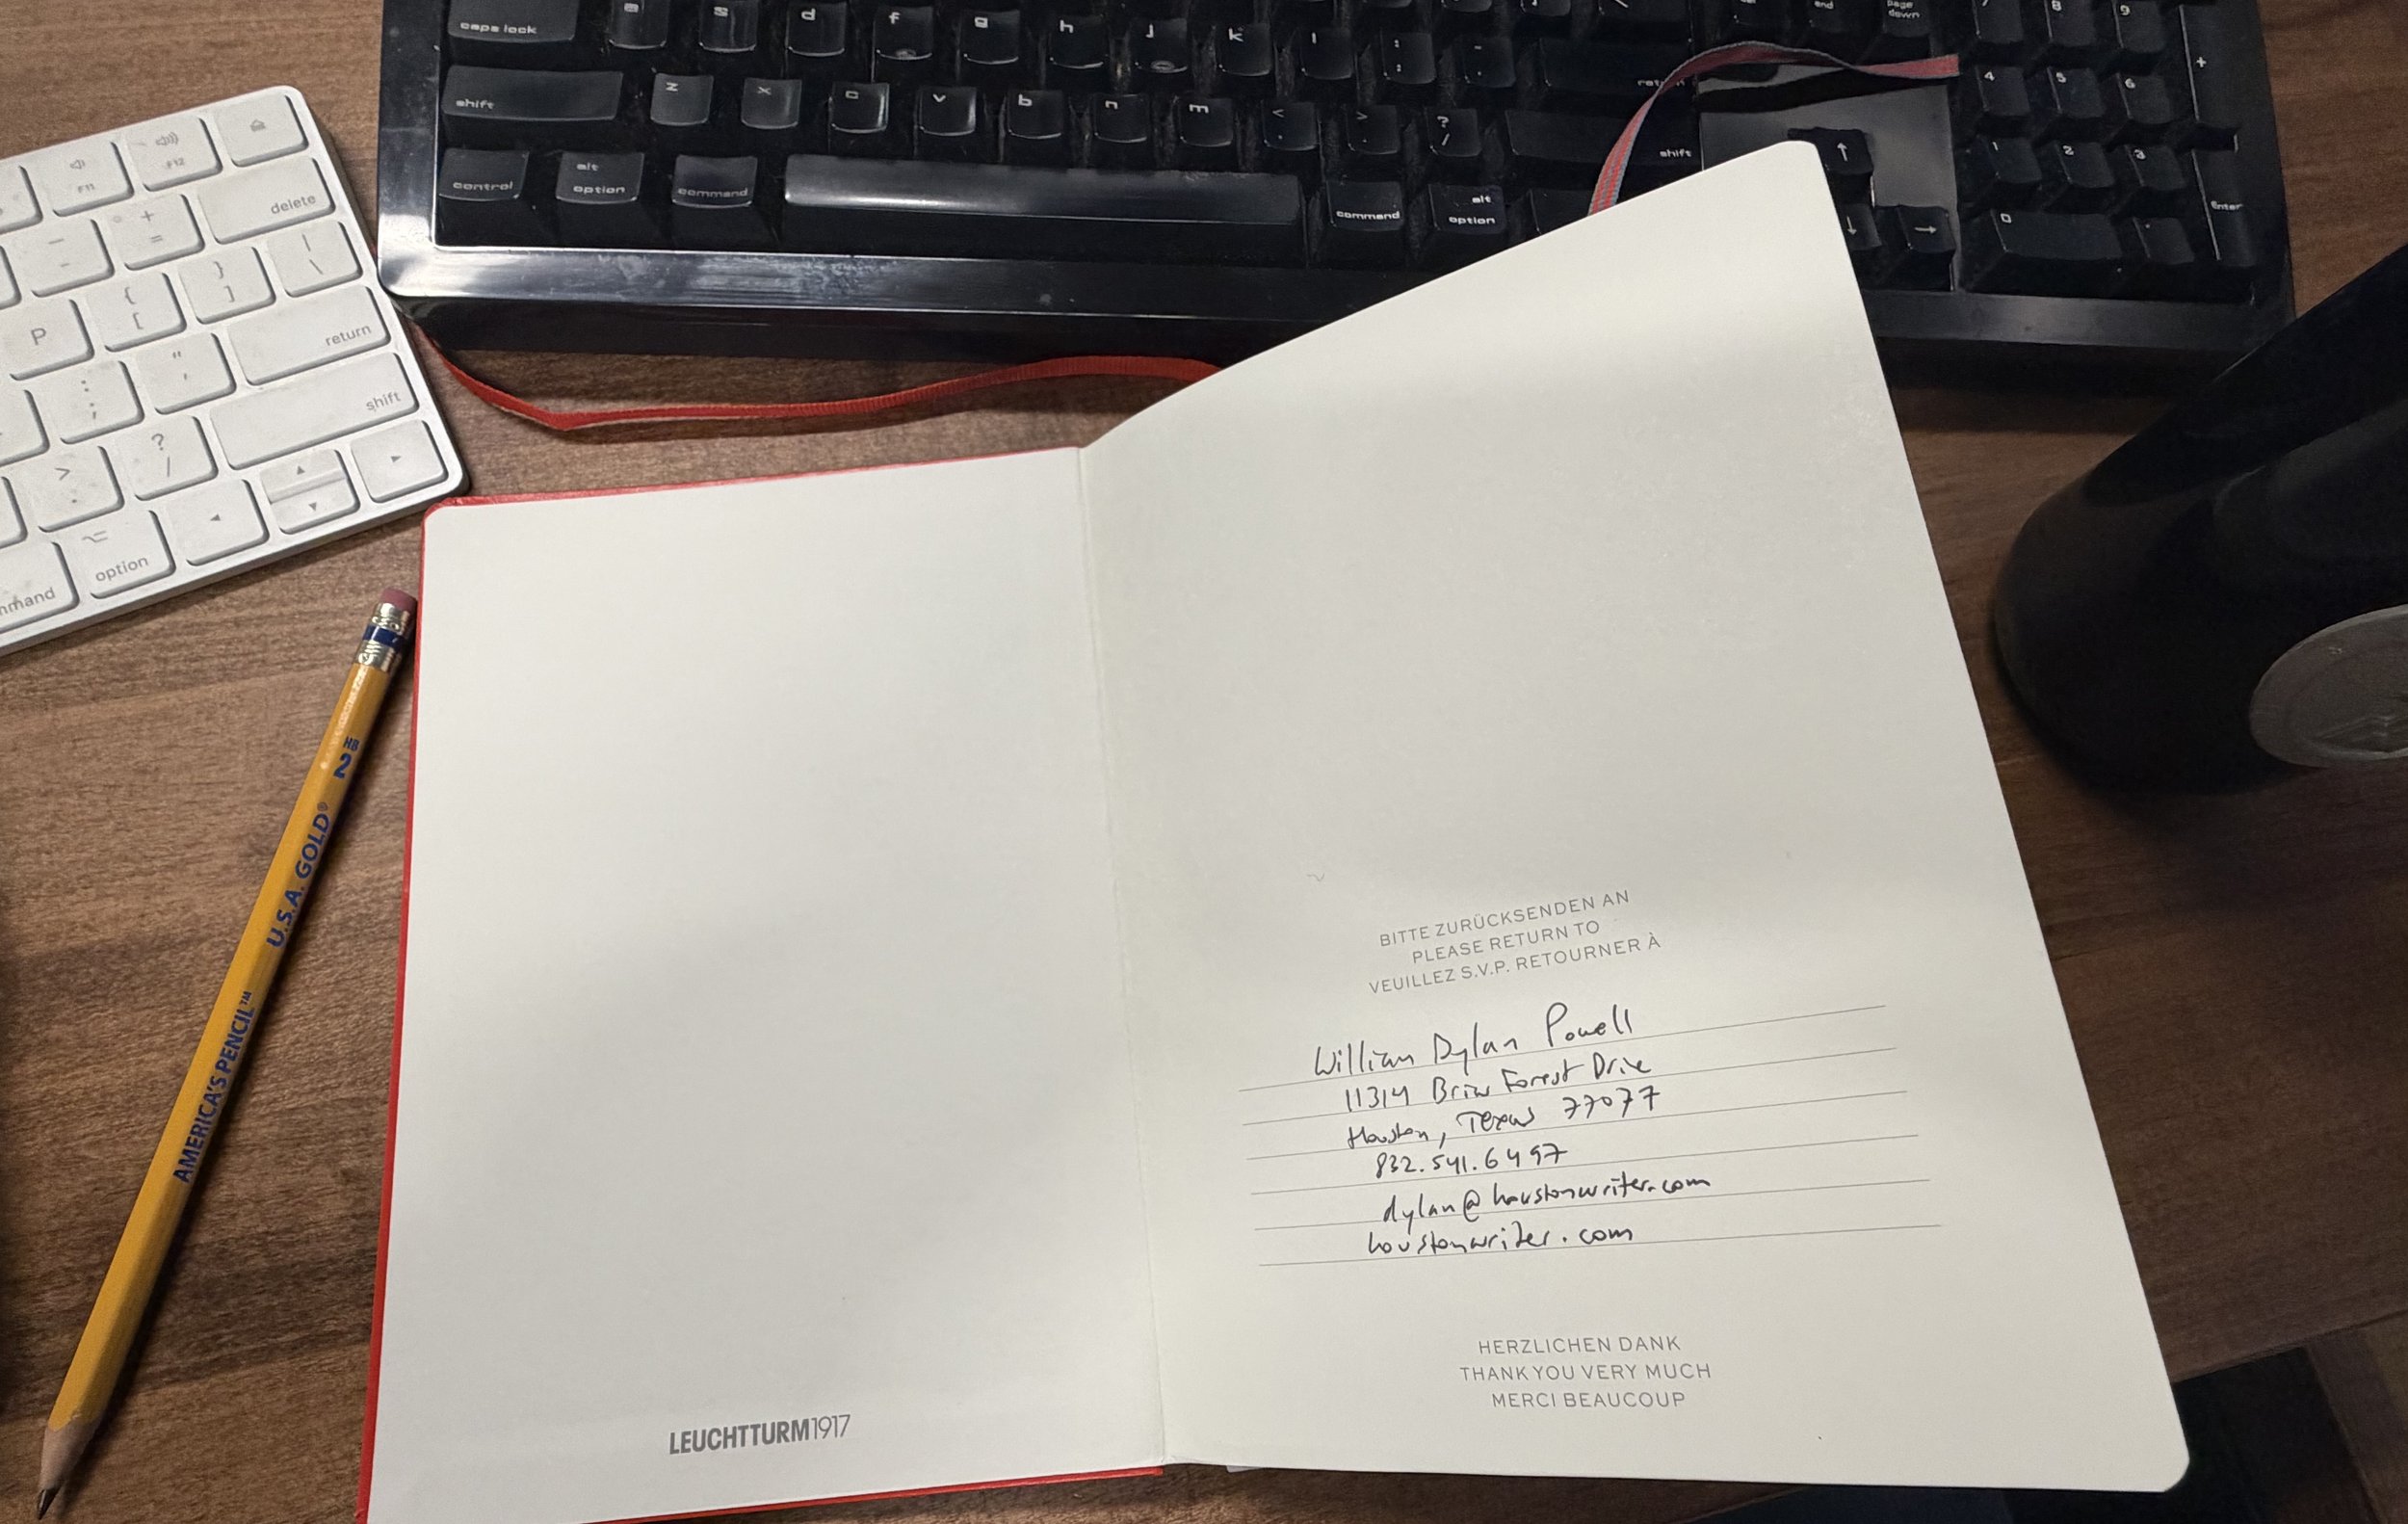 caps lock
a s d f g h j k l : ; " '
end
page down
7 8 9
shift
z x c v b n m < , > . ? /
return
4 5 6 +
control
alt option
command
command
alt option
shift
↑
1 2 3
↓ →
0 .
enter
F11 F12
delete
- + =
P { [ } ] | \
return
: ; " '
shift
> . ? /
mmand
option
U.S.A. GOLD® HB 2
AMERICA'S PENCIL™
LEUCHTTURM1917
BITTE ZURÜCKSENDEN AN
PLEASE RETURN TO
VEUILLEZ S.V.P. RETOURNER À
William Dylan Powell
11314 Briar Forest Drive
Houston, Texas 77077
832.541.6497
dylan@houstonwriter.com
houstonwriter.com
HERZLICHEN DANK
THANK YOU VERY MUCH
MERCI BEAUCOUP